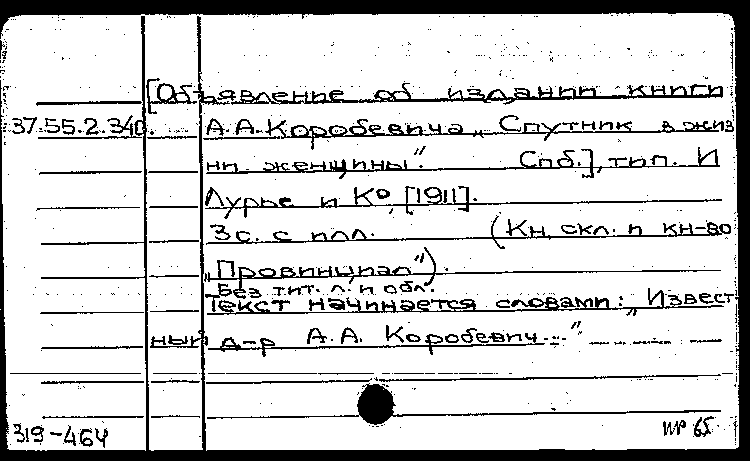 [Объявление об издании книги
37.55.2.340. А.А.Коробевича „Спутник в жиз
ни женщины". Спб.], тип. И
Лурье и К°, [1911].
3 с. с илл. (Кн. скл. и кн-во
„Провинциал").
Без тит. л. и обл.
Текст начинается словами: „Извест
ный д-р А.А. Коробевич..."
319-464